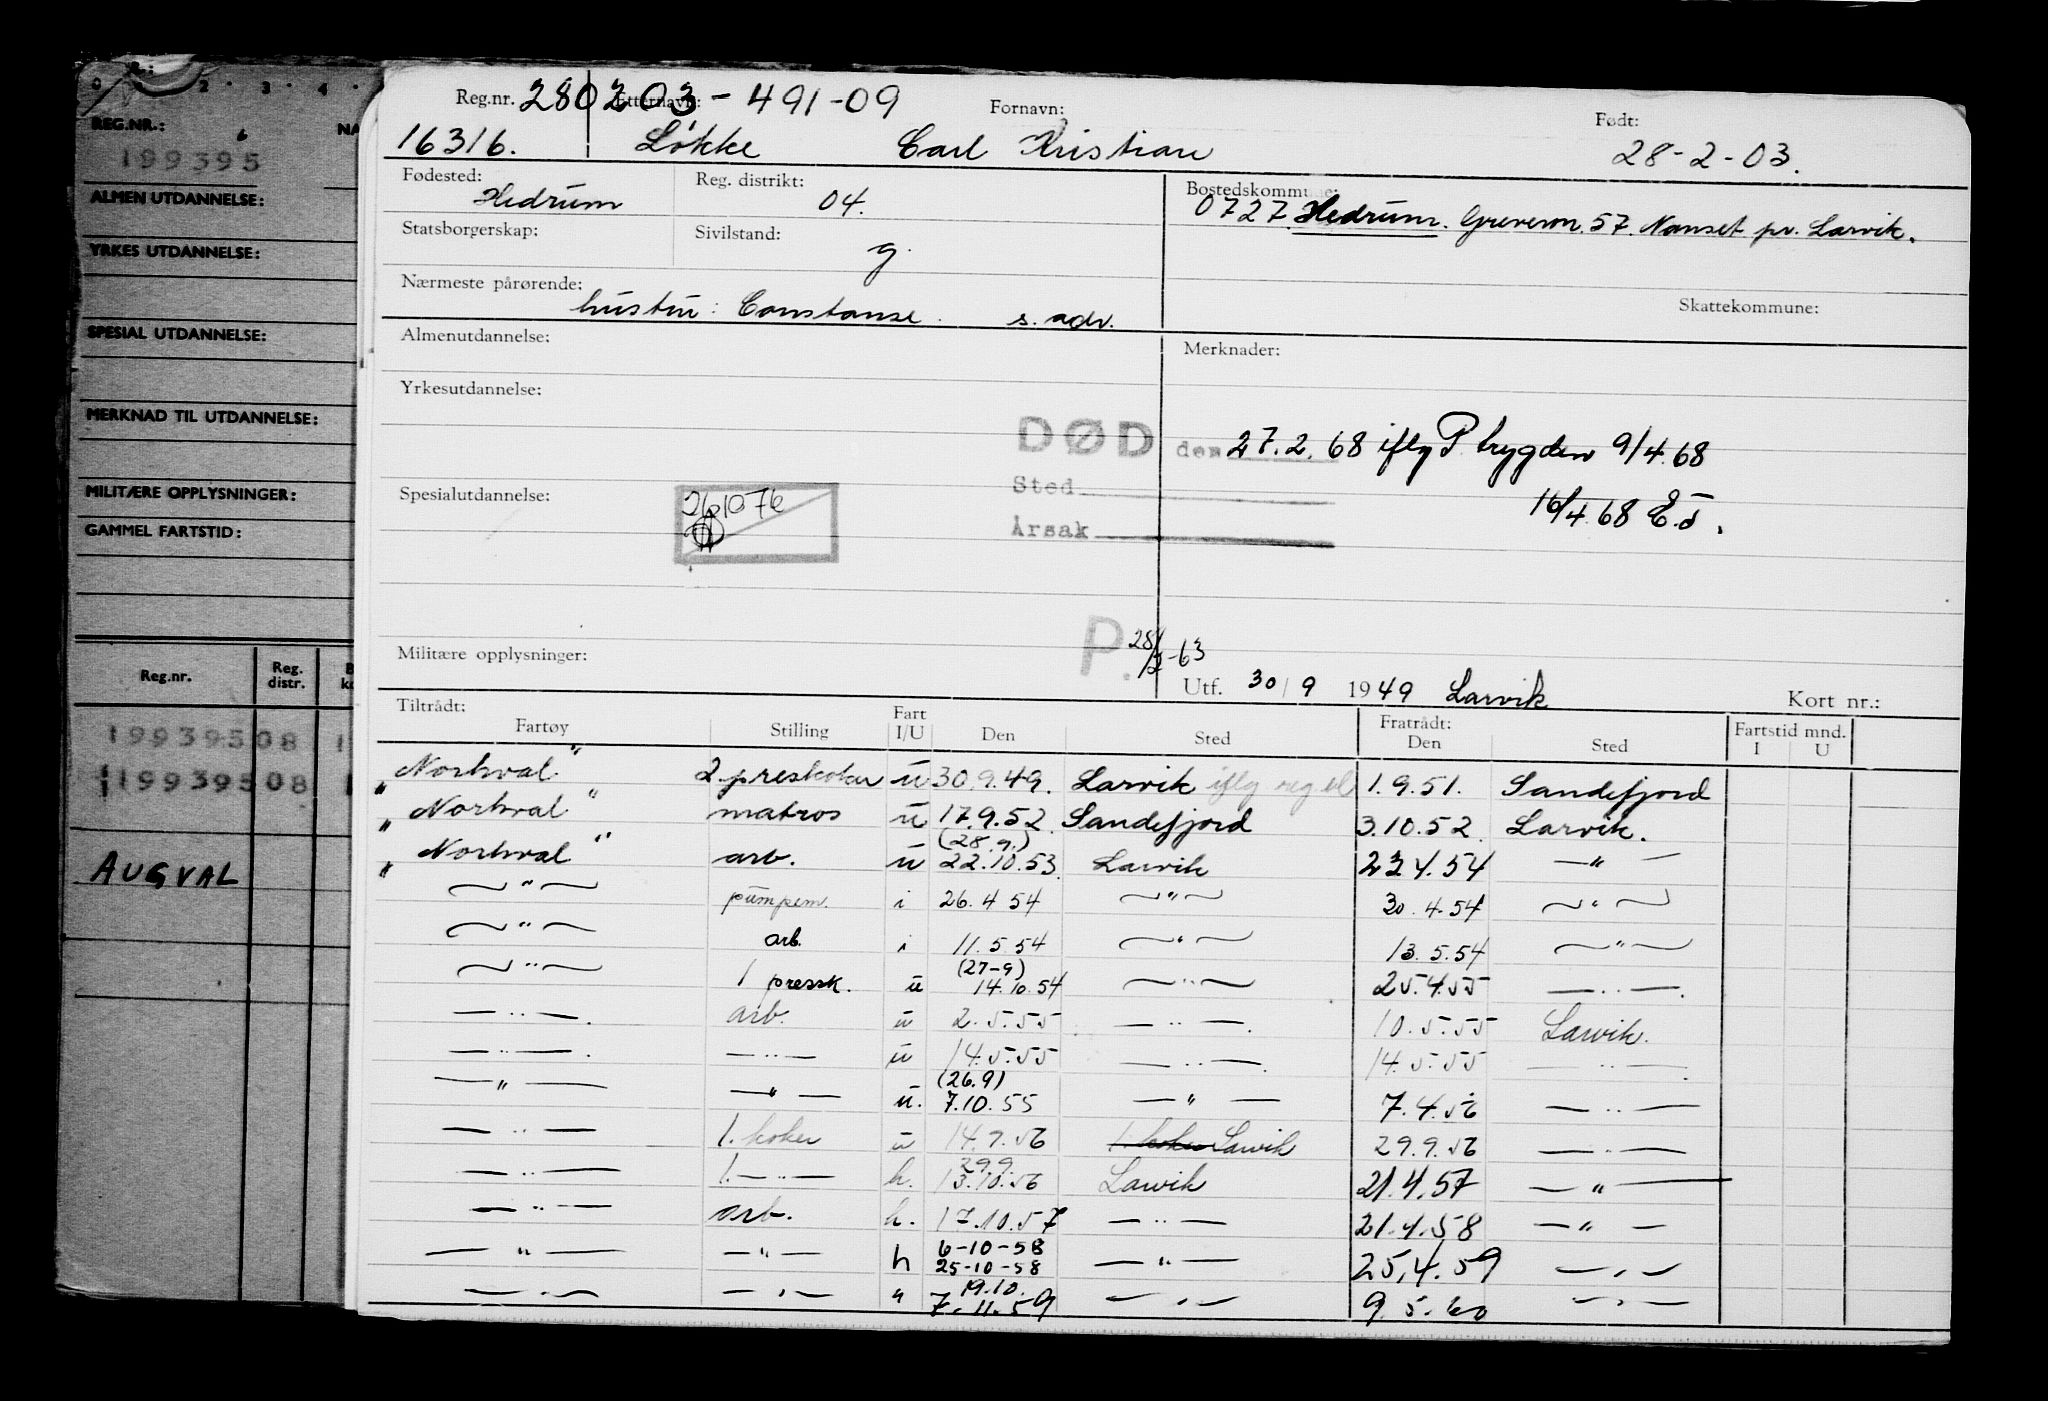 0 . 2 . 3 . 4 .
REG.NR.: NA
199395
ALMEN UTDANNELSE:
YRKES UTDANNELSE:
SPESIAL UTDANNELSE:
MERKNAD TIL UTDANNELSE:
MILITÆRE OPPLYSNINGER:
GAMMEL FARTSTID:
Reg.nr. Reg. distr.
199395 08 1
199395 08
AUGVAL
Reg.nr. 280203-491-09 Etternavn: Fornavn: Født:
16316. Løkke Carl Kristian 28-2-03.
Fødested: Hedrum Reg. distrikt: 04. Bostedskommune: 0727 Hedrum. Grevevn. 57. Nanset pr. Larvik.
Statsborgerskap: Sivilstand: g.
Nærmeste pårørende: hustru: Constanse. s. adr. Skattekommune:
Almenutdannelse: Merknader:
Yrkesutdannelse:
DØD den 27.2.68 iflg P. trygden 9/4.68
Spesialutdannelse: 261076 Sted 16/4.68 E.J.
Årsak
P. 28/2-63
Militære opplysninger: Utf. 30/9 1949 Larvik Kort nr.:
Tiltrådt: Fratrådt: Fartstid mnd.
Fartøy Stilling Fart I/U Den Sted Den Sted I U
"Norhval" 2 preskoker u 30.9.49. Larvik iflg reg.bl 1.9.51. Sandefjord
"Norhval" matros u 17.9.52. Sandefjord 3.10.52. Larvik.
"Norhval" arb. u (28.9.) 22.10.53. Larvik 23.4.54 — " —
— " — pumpem. i 26.4 54 — " — 30.4.54 — " —
— " — arb. i 11.5 54 — " — 13.5.54 — " —
— " — 1 pressk. u (27-9) 14.10.54 — " — 25.4.55 — " —.
— " —. arb. u 2.5.55 — " —. 10.5.55 Larvik.
— " —. — " — u 14.5.55 — " —. 14.5.55 — " —.
— " — — " — u. (26.9) 7.10.55 — " — 7.4.56 — " —
— " — 1. koker u 14.9.56 1 koker Larvik 29.9.56 — " —
— " — 1. — " — h. 29.9 13.10.56 Larvik 21.4.57 — " —
— " — arb. h. 17.10.57 — " — 21.4.58 — " —
— " — — " — h 6-10-58 25-10-58 — " — 25.4.59 — " —
— " — — " — " 19.10. 7.11.59 — " — 9.5.60 — " —